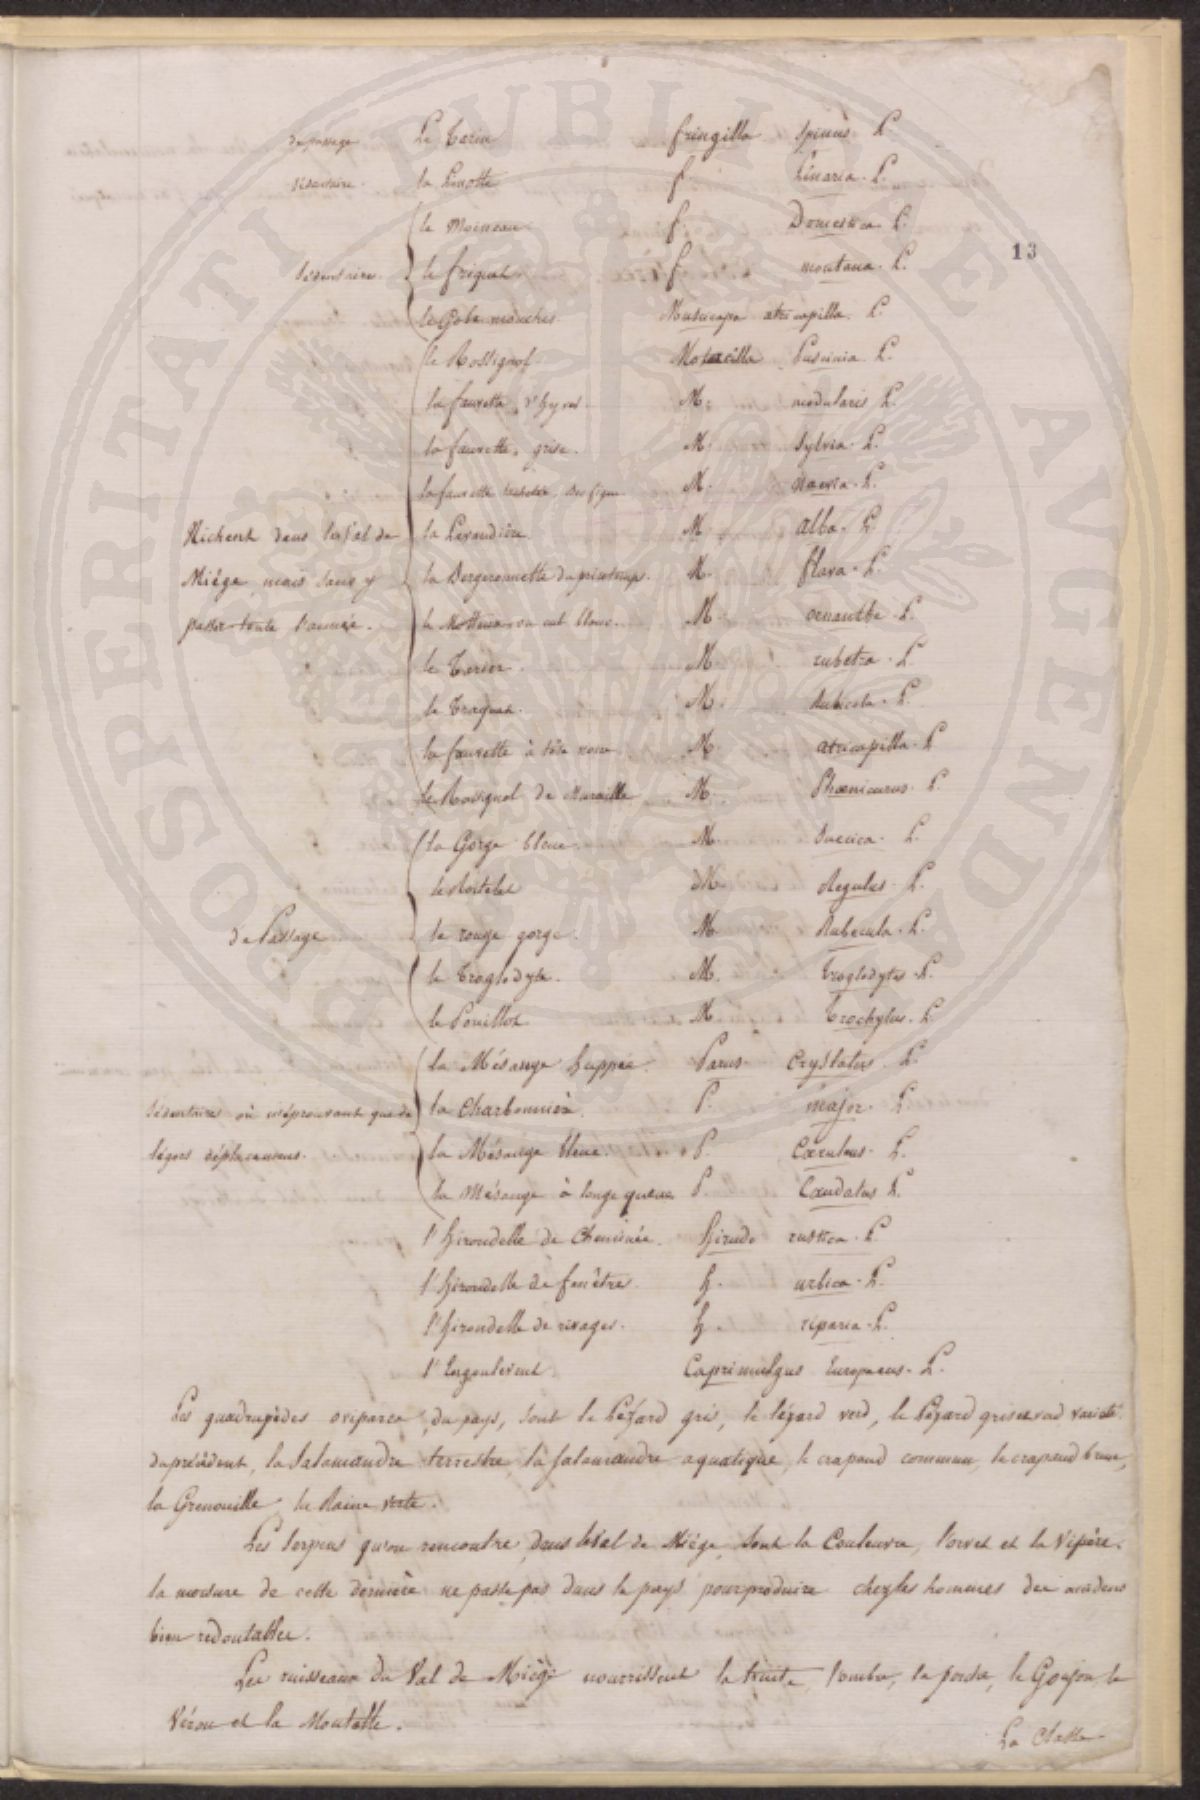 de passage Le Tarin fringilla spinus L.
sédentaire. la Linotte f. Linaria. L.
le Moineau f. Domestica. L.
13
sédentaire. le friquet f. montana. L.
le Gobe mouches Muscicapa atricapilla. L.
le Rossignol. Motacilla Luscinia. L.
la fauvette d'hyver. M. modularis L.
la fauvette grise. M. Sylvia. L.
la fauvette tachetée, Bec figue M. Naevia. L.
Nichent dans le Val de la Lavandière M. alba. L.
Miège, mais sans y la Bergeronnette du printemps. M. flava. L.
passer toute l'année. le Motteux ou cul blanc. M. oenanthe. L.
le Tarier. M. rubetra. L.
le Traquet. M. Rubicola. L.
la fauvette à tête noire M. atricapilla. L.
le Rossignol de Muraille M. Phoenicurus. L.
la Gorge bleue. M. Suecica. L.
le Roitelet M. Regulus. L.
de Passage le rouge gorge. M. Rubecula. L.
le Troglodyte. M. Troglodytes. L.
le Pouillot M. Trochylus. L.
la Mésange huppée. Parus Crystatus. L.
Sédentaires où n'éprouvant que de la Charbonnière. P. major. L.
légers déplacemens. la Mésange bleue. P. Cæruleus. L.
la Mésange à longe queue P. Caudatus L.
l'hirondelle de Cheminée. hirudo rustica. L.
l'hirondelle de fenêtre. h. urbica. L.
l'hirondelle de rivages. h. riparia. L.
l'Engoulevent Caprimulgus Europaeus. L.
Les quadrupèdes ovipares du pays, sont le Lézard gris, le lézard verd, le Lézard gris et verd variété
du précédent, la Salamandre terrestre, la salamandre aquatique, le crapaud commun, le crapaud brun,
la Grenouille, la Raine verte.
Les serpens qu'on rencontre dans le Val de Miège sont la Couleuvre, l'orvet et la Vipère.
la morsure de cette dernière ne passe pas dans le pays pour produire chez les hommes des accidens
bien redoutables.
Les ruisseaux du Val de Miège nourrissent la truite, l'ombre, la perche, le Goujon, le
Véron et la Moutelle.
La Classe